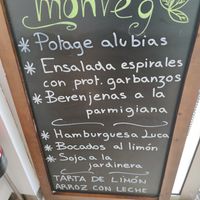 monveg
* Potage alubias
* Ensalada espirales
con prot. garbanzos
* Berenjenas a la
parmigiana
* Hamburguesa Luca
* Bocados al limón
* Soja a la
jardinera
TARTA DE LIMÓN
ARROZ CON LECHE